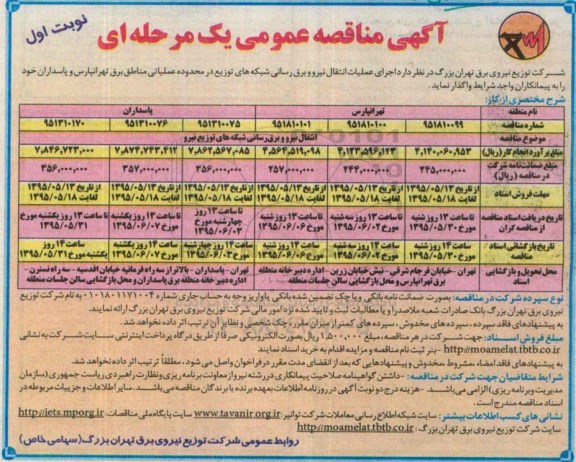 نوبت اول
آگهی مناقصه عمومی یک مرحله ای
شرکت توزیع نیروی برق تهران بزرگ در نظر دارد اجرای عملیات انتقال نیرو و برق رسانی شبکه های توزیع در محدوده عملیاتی مناطق برق تهرانپارس و پاسداران خود
را به پیمانکاران واجد شرایط واگذار نماید.
شرح مختصری از کار:
نام منطقه تهرانپارس پاسداران
شماره مناقصه ۹۵۱۸۱۰۰۹۹ ۹۵۱۸۱۰۱۰۰ ۹۵۱۸۱۰۱۰۱ ۹۵۱۳۱۰۰۷۵ ۹۵۱۳۱۰۰۷۶ ۹۵۱۳۱۰۱۷۰
موضوع مناقصه انتقال نیرو و برق رسانی شبکه های توزیع نیرو
مبلغ برآورد انجام کار (ریال) ۴,۱۴۰,۰۶۰,۹۵۳ ۴,۱۲۳,۵۹۶,۱۲۳ ۴,۵۶۴,۵۱۹,۰۹۸ ۷,۸۶۲,۵۶۷,۰۸۵ ۷,۸۷۴,۷۴۳,۴۱۲ ۷,۸۴۶,۷۲۳,۰۰۰
مبلغ ضمانتنامه شرکت در مناقصه (ریال) ۲۴۵,۰۰۰,۰۰۰ ۲۴۴,۰۰۰,۰۰۰ ۲۵۷,۰۰۰,۰۰۰ ۳۵۶,۰۰۰,۰۰۰ ۳۵۷,۰۰۰,۰۰۰ ۳۵۶,۰۰۰,۰۰۰
مهلت فروش اسناد از تاریخ ۱۳۹۵/۰۵/۱۳ لغایت ۱۳۹۵/۰۵/۱۸ از تاریخ ۱۳۹۵/۰۵/۱۳ لغایت ۱۳۹۵/۰۵/۱۸ از تاریخ ۱۳۹۵/۰۵/۱۳ لغایت ۱۳۹۵/۰۵/۱۸ از تاریخ ۱۳۹۵/۰۵/۱۳ لغایت ۱۳۹۵/۰۵/۱۸ از تاریخ ۱۳۹۵/۰۵/۱۳ لغایت ۱۳۹۵/۰۵/۱۸ از تاریخ ۱۳۹۵/۰۵/۱۳ لغایت ۱۳۹۵/۰۵/۱۸
تاریخ دریافت اسناد مناقصه از مناقصه گران تا ساعت ۱۳ روز شنبه مورخ ۱۳۹۵/۰۵/۳۰ تا ساعت ۱۳ روز سه شنبه مورخ ۱۳۹۵/۰۶/۰۲ تا ساعت ۱۳ روز شنبه مورخ ۱۳۹۵/۰۶/۰۶ تا ساعت ۱۳ روز چهارشنبه مورخ ۱۳۹۵/۰۶/۰۳ تا ساعت ۱۳ روز یکشنبه مورخ ۱۳۹۵/۰۶/۰۷ تا ساعت ۱۳ روز یکشنبه مورخ ۱۳۹۵/۰۵/۳۱
تاریخ بازگشائی اسناد مناقصه ساعت ۱۴ روز شنبه مورخ ۱۳۹۵/۰۵/۳۰ ساعت ۱۴ روز سه شنبه مورخ ۱۳۹۵/۰۶/۰۲ ساعت ۱۴ روز شنبه مورخ ۱۳۹۵/۰۶/۰۶ ساعت ۱۴ روز چهارشنبه مورخ ۱۳۹۵/۰۶/۰۳ ساعت ۱۴ روز یکشنبه مورخ ۱۳۹۵/۰۶/۰۷ ساعت ۱۴ روز یکشنبه مورخ ۱۳۹۵/۰۵/۳۱
محل تحویل و بازگشایی اسناد تهران - خیابان فرجام شرقی - نبش خیابان زرین - اداره دبیرخانه منطقه برق تهرانپارس و محل بازگشایی سالن جلسات منطقه تهران - پاسداران - بالاتر از سه راه فرمانیه خیابان اقدسیه - سه راه نسترن - اداره دبیرخانه منطقه برق پاسداران و محل بازگشایی سالن جلسات منطقه
نوع سپرده شرکت در مناقصه: بصورت ضمانت نامه بانکی و یا چک تضمین شده بانکی یا واریز وجه به حساب جاری شماره ۰۱۰۱۸۰۱۱۷۱۰۰۴ به نام شرکت توزیع
نیروی برق تهران بزرگ بانک صادرات شعبه ملاصدرا و یا مطالبات ثبت و تایید شده نزد امور مالی شرکت توزیع نیروی برق تهران بزرگ ارائه نمایند.
به پیشنهادهای فاقد سپرده، سپرده های مخدوش، سپرده های کمتر از میزان مقرر، چک شخصی و نظایر آن ترتیب اثر داده نخواهد شد.
مبلغ فروش اسناد: جهت شرکت در هر مناقصه، مبلغ ۱,۵۰۰,۰۰۰ ریال بصورت الکترونیکی صرفاً از طریق درگاه پرداخت اینترنتی سایت شرکت به نشانی
http://moamelat.tbtb.co.ir - بنر ثبت نام مناقصه و مزایده اقدام به خرید اسناد نمایند
به پیشنهادهای فاقد امضاء، مشروط، مخدوش و پیشنهادهایی که بعد از انقضای مدت مقرر در فراخوان واصل می شود، مطلقاً ترتیب اثر داده نخواهد شد.
شرایط متقاضیان جهت شرکت در مناقصه: - داشتن گواهینامه صلاحیت پیمانکاری در رشته نیرو از معاونت برنامه ریزی و نظارت راهبردی ریاست جمهوری (سازمان
مدیریت وبرنامه ریزی) الزامی می باشد. - هزینه درج دو نوبت آگهی در روزنامه اطلاعات بعهده برنده یا برندگان مناقصه می باشد. سایر اطلاعات و جزییات مربوطه در
اسناد مناقصه مندرج است.
نشانی های کسب اطلاعات بیشتر: سایت شبکه اطلاع رسانی معاملات شرکت توانیر www.tavanir.org.ir سایت پایگاه ملی مناقصات: http://iets.mporg.ir
سایت شرکت توزیع نیروی برق تهران بزرگ: http://moamelat.tbtb.co.ir
روابط عمومی شرکت توزیع نیروی برق تهران بزرگ (سهامی خاص)